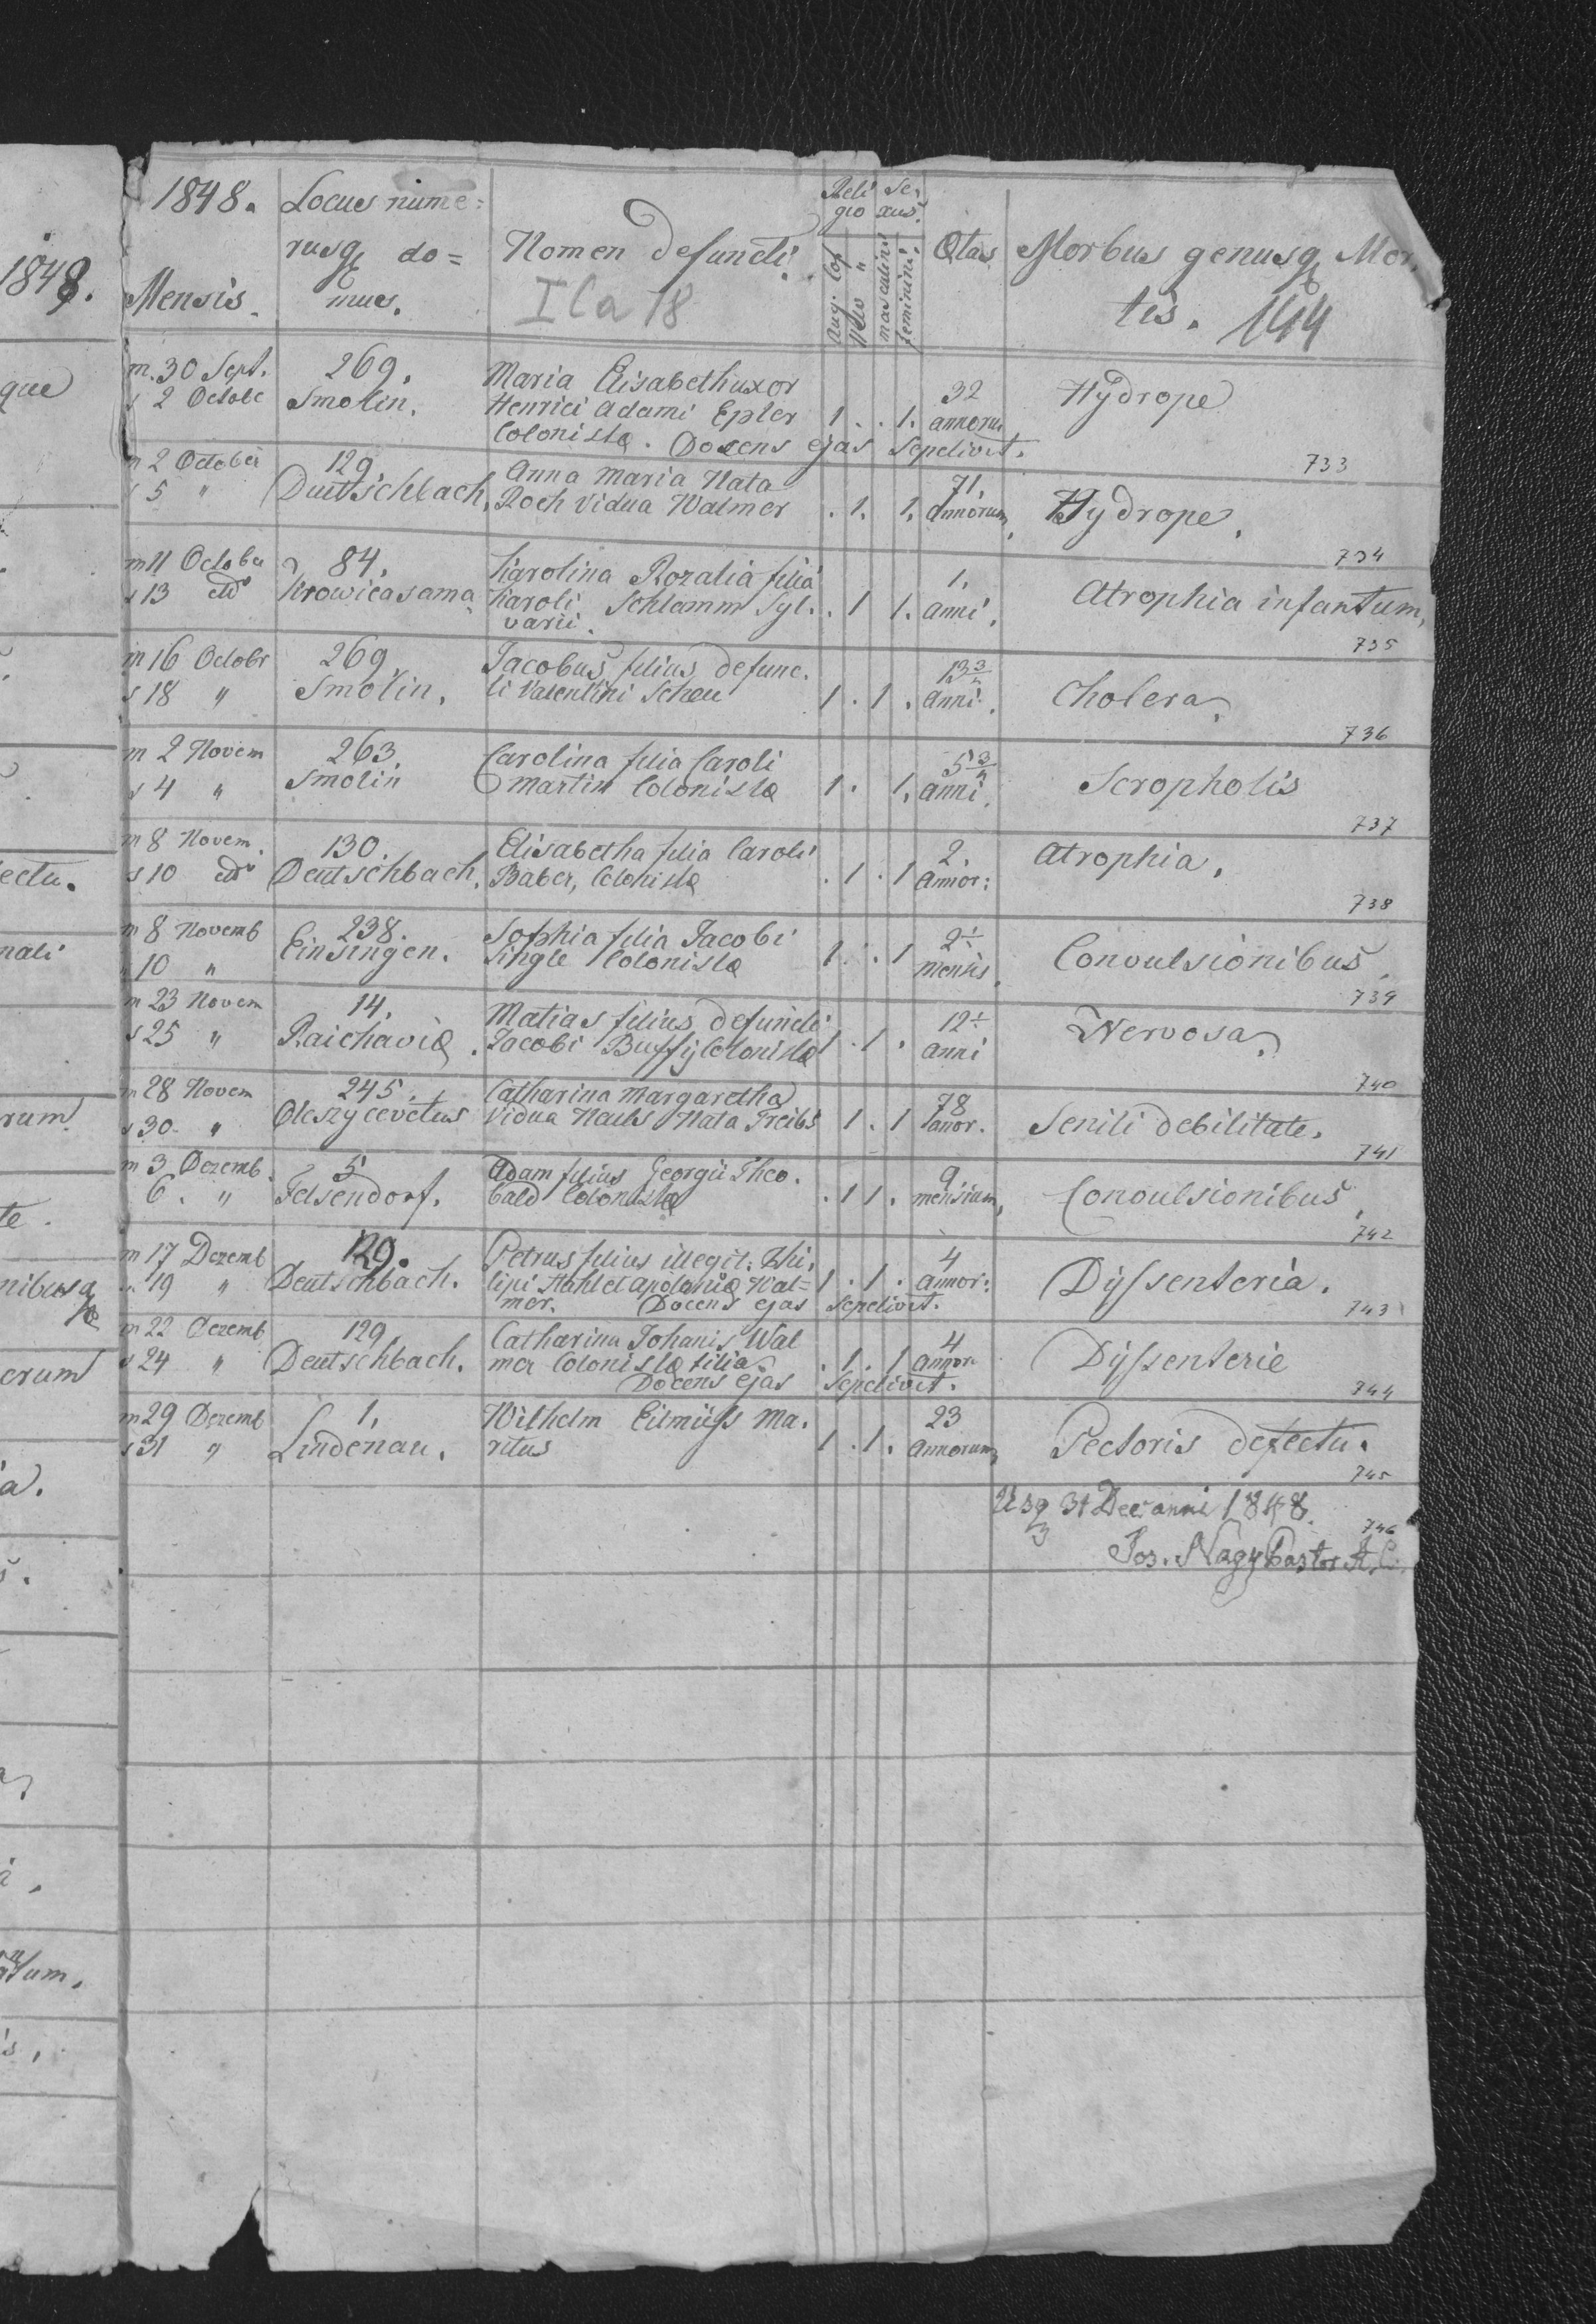 1848.
que
ectu.
nali
rum
te.
nibusq
erum
a.
1848. Locus nume=
rusq do=
mus.
Mensis.
Nomen defuncti.
I C a 18
Reli
gio
Se.
xus.
Aug. Cof
masculini
feminini
Ætas
Morbus genusq Mor.
tis. 144
m. 30 Sept. 269. Maria Elisabetha uxor 32 Hydrope
s 2 Octobr Smolin. Henrici Adami Epler 1 . . 1. annorum
Colonistæ. Docens ejas Sepelivit. 733
m 2 October 129. Anna Maria Nata 71.
s 5 " Deutschbach. Roch Vidua Walmer . 1. 1. annorum, Hydrope. 734
m 11 October 84. Karolina Rozalia filia 1.
s 13 Krowicasama Karoli Schlamm Syl. . 1 1. anni. Atrophia infantum,
varii. 735
m 16 Octobr 269. Jacobus filius defunc. 13 3/4
s 18 " Smolin. ti Valentini Scheu 1 . 1 . anni. Cholera. 736
m 2 Novem 263. Carolina filia Caroli 5 3/4
s 4 " Smolin Martin Colonistæ 1 . 1. anni. Scropholis 737
m 8 Novem. 130. Elisabetha filia Caroli 2. Atrophia.
s 10 Deutschbach. Baber, Colonistæ . 1 . 1 annor: 738
m 8 Novemb 238. Sophia filia Jacobi 2
10 " Einsingen. Single Colonistæ 1 . . 1 mensis, Convulsionibus, 739
m 23 Novem 14. Matias filius defuncti 12
s 25 " Raichaviæ. Jacobi Buffy Colonistæ 1 . 1 . anni Nervosa. 740
m 28 Novem 245. Catharina Margaretha 78
s 30. " Oleszycevetus Vidua Nata Treibs 1 . 1 anor. Senili debilitate. 741
m 3 Dezemb. 5 Adam filius Georgii Theo. 9
6. " Felsendorf. bald Colonistæ . 1 1 . mensium, Convulsionibus, 742
m 17 Dezemb 129. Petrus filius illegit. Phi. 4
19 " Deutschbach. lipi et Apoloniæ Wal= 1 . 1 . annor: Dyssenteria.
mer. Docens ejas Sepelivit. 743
m 22 Dezemb 129 Catharina Johanis Wal 4
s 24 " Deutschbach. mer Colonistæ filia. . 1 . 1 annor. Dyssenterie
Docens ejas Sepelivit. 744
m 29 Dezemb 1. Wilhelm Eilmüss Ma. 23
s 31 " Lindenau. ritus 1 . 1. annorum, Pectoris defectu. 745
Usq 31 Dec anni 1848. 746
Jos. Nagy Pastor A.C.